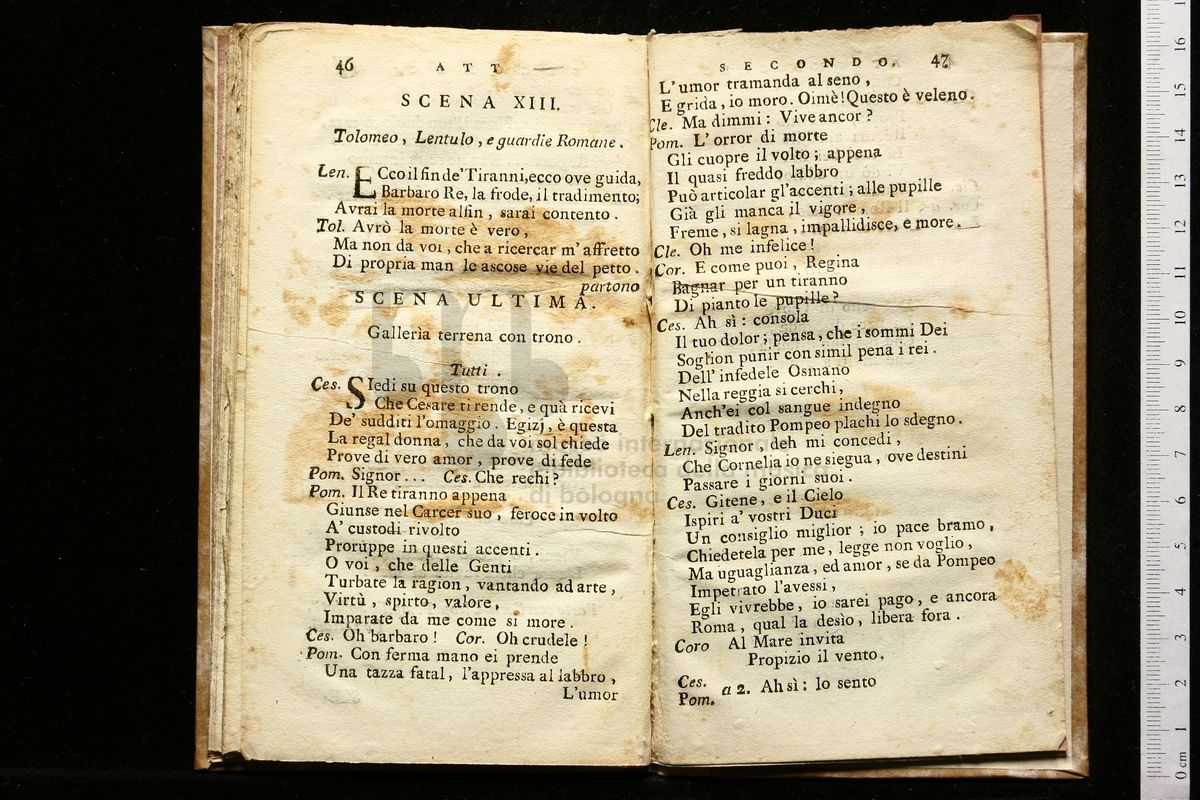 46 ATT
SCENA XIII.
Tolomeo, Lentulo, e guardie Romane.
Len. ECco il fin de' Tiranni, ecco ove guida,
Barbaro Re, la frode, il tradimento;
Avrai la morte alfin, sarai contento.
Tol. Avrò la morte è vero,
Ma non da voi, che a ricercar m'affretto
Di propria man le ascose vie del petto.
partono
SCENA ULTIMA.
Gallerìa terrena con trono.
Tutti.
Ces. SIedi su questo trono
Che Cesare ti rende, e quà ricevi
De' sudditi l'omaggio. Egizj, è questa
La regal donna, che da voi sol chiede
Prove di vero amor, prove di fede
Pom. Signor... Ces. Che rechi?
Pom. Il Re tiranno appena
Giunse nel Carcer suo, feroce in volto
A' custodi rivolto
Proruppe in questi accenti.
O voi, che delle Genti
Turbate la ragion, vantando ad arte,
Virtù, spirto, valore,
Imparate da me come si more.
Ces. Oh barbaro! Cor. Oh crudele!
Pom. Con ferma mano ei prende
Una tazza fatal, l'appressa al labbro,
L'umor
SECONDO. 47
L'umor tramanda al seno,
E grida, io moro. Oimè! Questo è veleno.
Cle. Ma dimmi: Vive ancor?
Pom. L'orror di morte
Gli cuopre il volto; appena
Il quasi freddo labbro
Può articolar gl'accenti; alle pupille
Già gli manca il vigore,
Freme, si lagna, impallidisce, e more.
Cle. Oh me infelice!
Cor. E come puoi, Regina
Bagnar per un tiranno
Di pianto le pupille?
Ces. Ah sì: consola
Il tuo dolor; pensa, che i sommi Dei
Soglion punir con simil pena i rei.
Dell'infedele Osmano
Nella reggia si cerchi,
Anch'ei col sangue indegno
Del tradito Pompeo plachi lo sdegno.
Len. Signor, deh mi concedi,
Che Cornelia io ne siegua, ove destini
Passare i giorni suoi.
Ces. Gitene, e il Cielo
Ispiri a' vostri Duci
Un consiglio miglior; io pace bramo,
Chiedetela per me, legge non voglio,
Ma uguaglianza, ed amor, se da Pompeo
Impetrato l'avessi,
Egli vivrebbe, io sarei pago, e ancora
Roma, qual la desìo, libera fora.
Coro Al Mare invita
Propizio il vento.
Ces.
Pom. a 2. Ah sì: lo sento